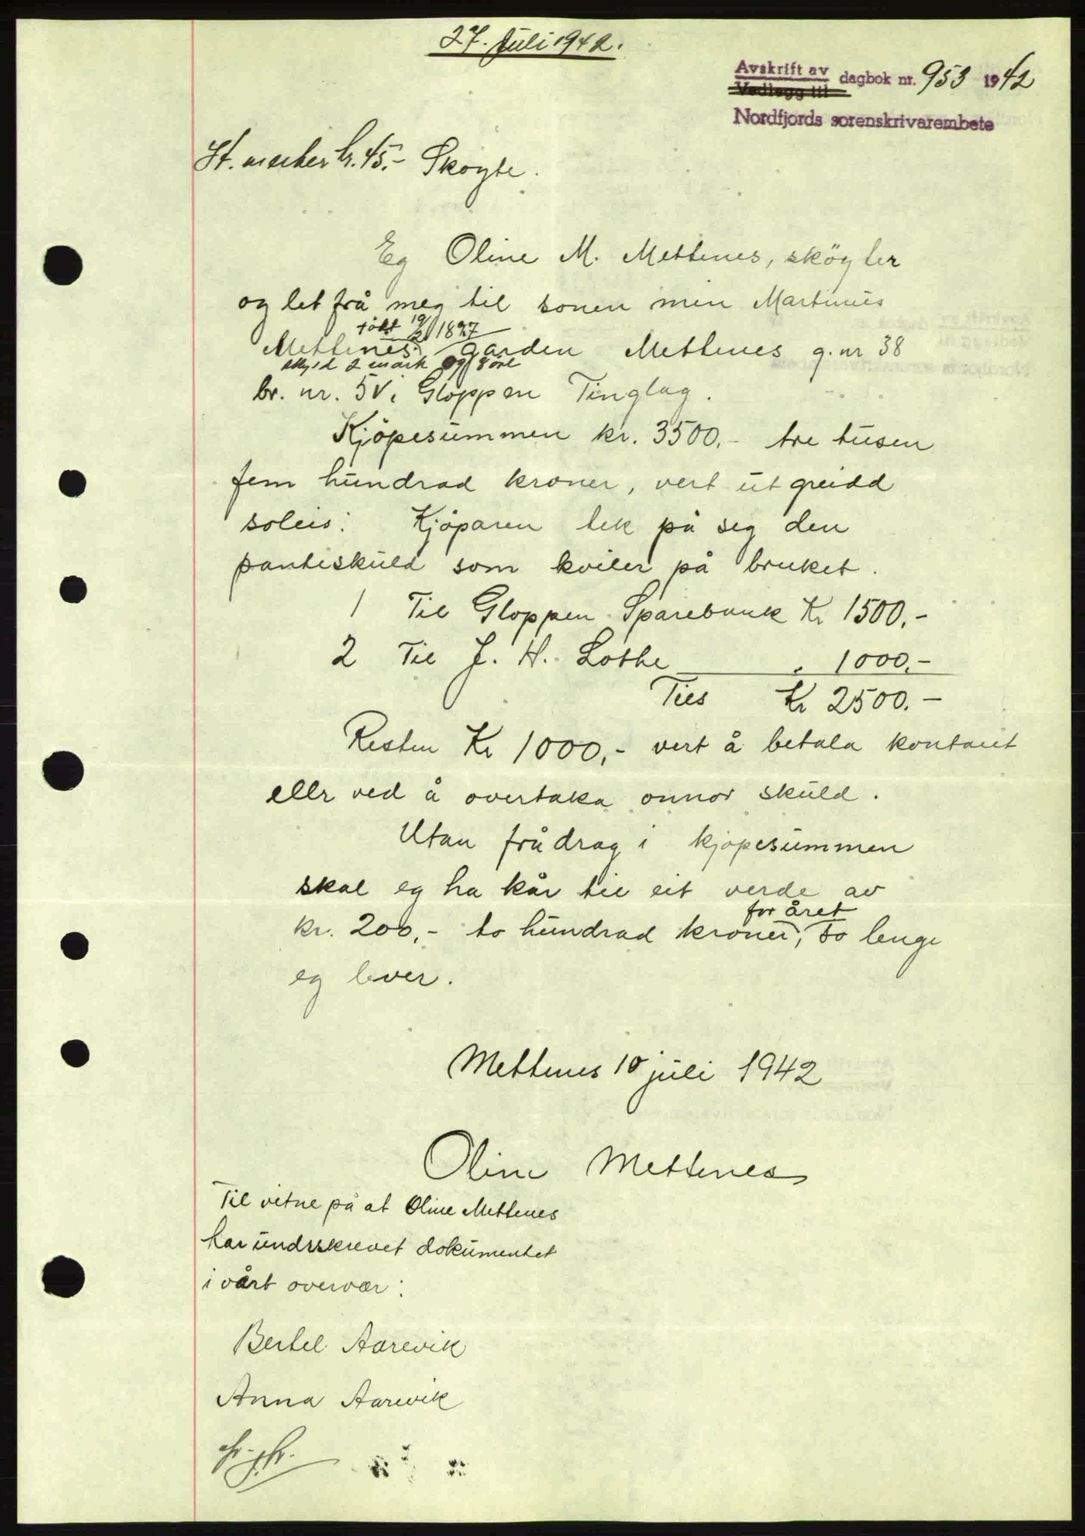 27. Juli 1942.
Avskrift av
Vedlegg til
dagbok nr. 953 1942
Nordfjords sorenskrivarembete
St. merker kr. 45.- Skøyte.
Eg Oline M. Mettenes, skøyter
og let frå meg til sonen min Martinus
født 19/2 1897
Mettenes garden Mettenes g.nr 38
skyld 2 mark og 8 øre
br. nr. 5 i Gloppen Tinglag.
Kjöpesummen kr. 3500,- tre tusen
fem hundrad kroner, vert ut greidd
soleis: Kjöparen tek på seg den
panteskuld som kviler på bruket.
1 Til Gloppen Sparebank Kr 1500,-
2 Til J. H. Lothe " 1000,-
Ties Kr 2500.-
Resten Kr 1000,- vert å betala kontant
ellr ved å overtaka onnor skuld.
Utan frådrag i kjøpesummen
skal eg ha kår til eit verde av
for året
kr. 200,- to hundrad kroner, so lenge
eg lever.
Mettenes 10 juli 1942
Oline Mettenes
Til vitne på at Oline Mettenes
har undrskrevet dokumentet
i vårt overvær:
Bertel Aarevik
Anna Aarevik